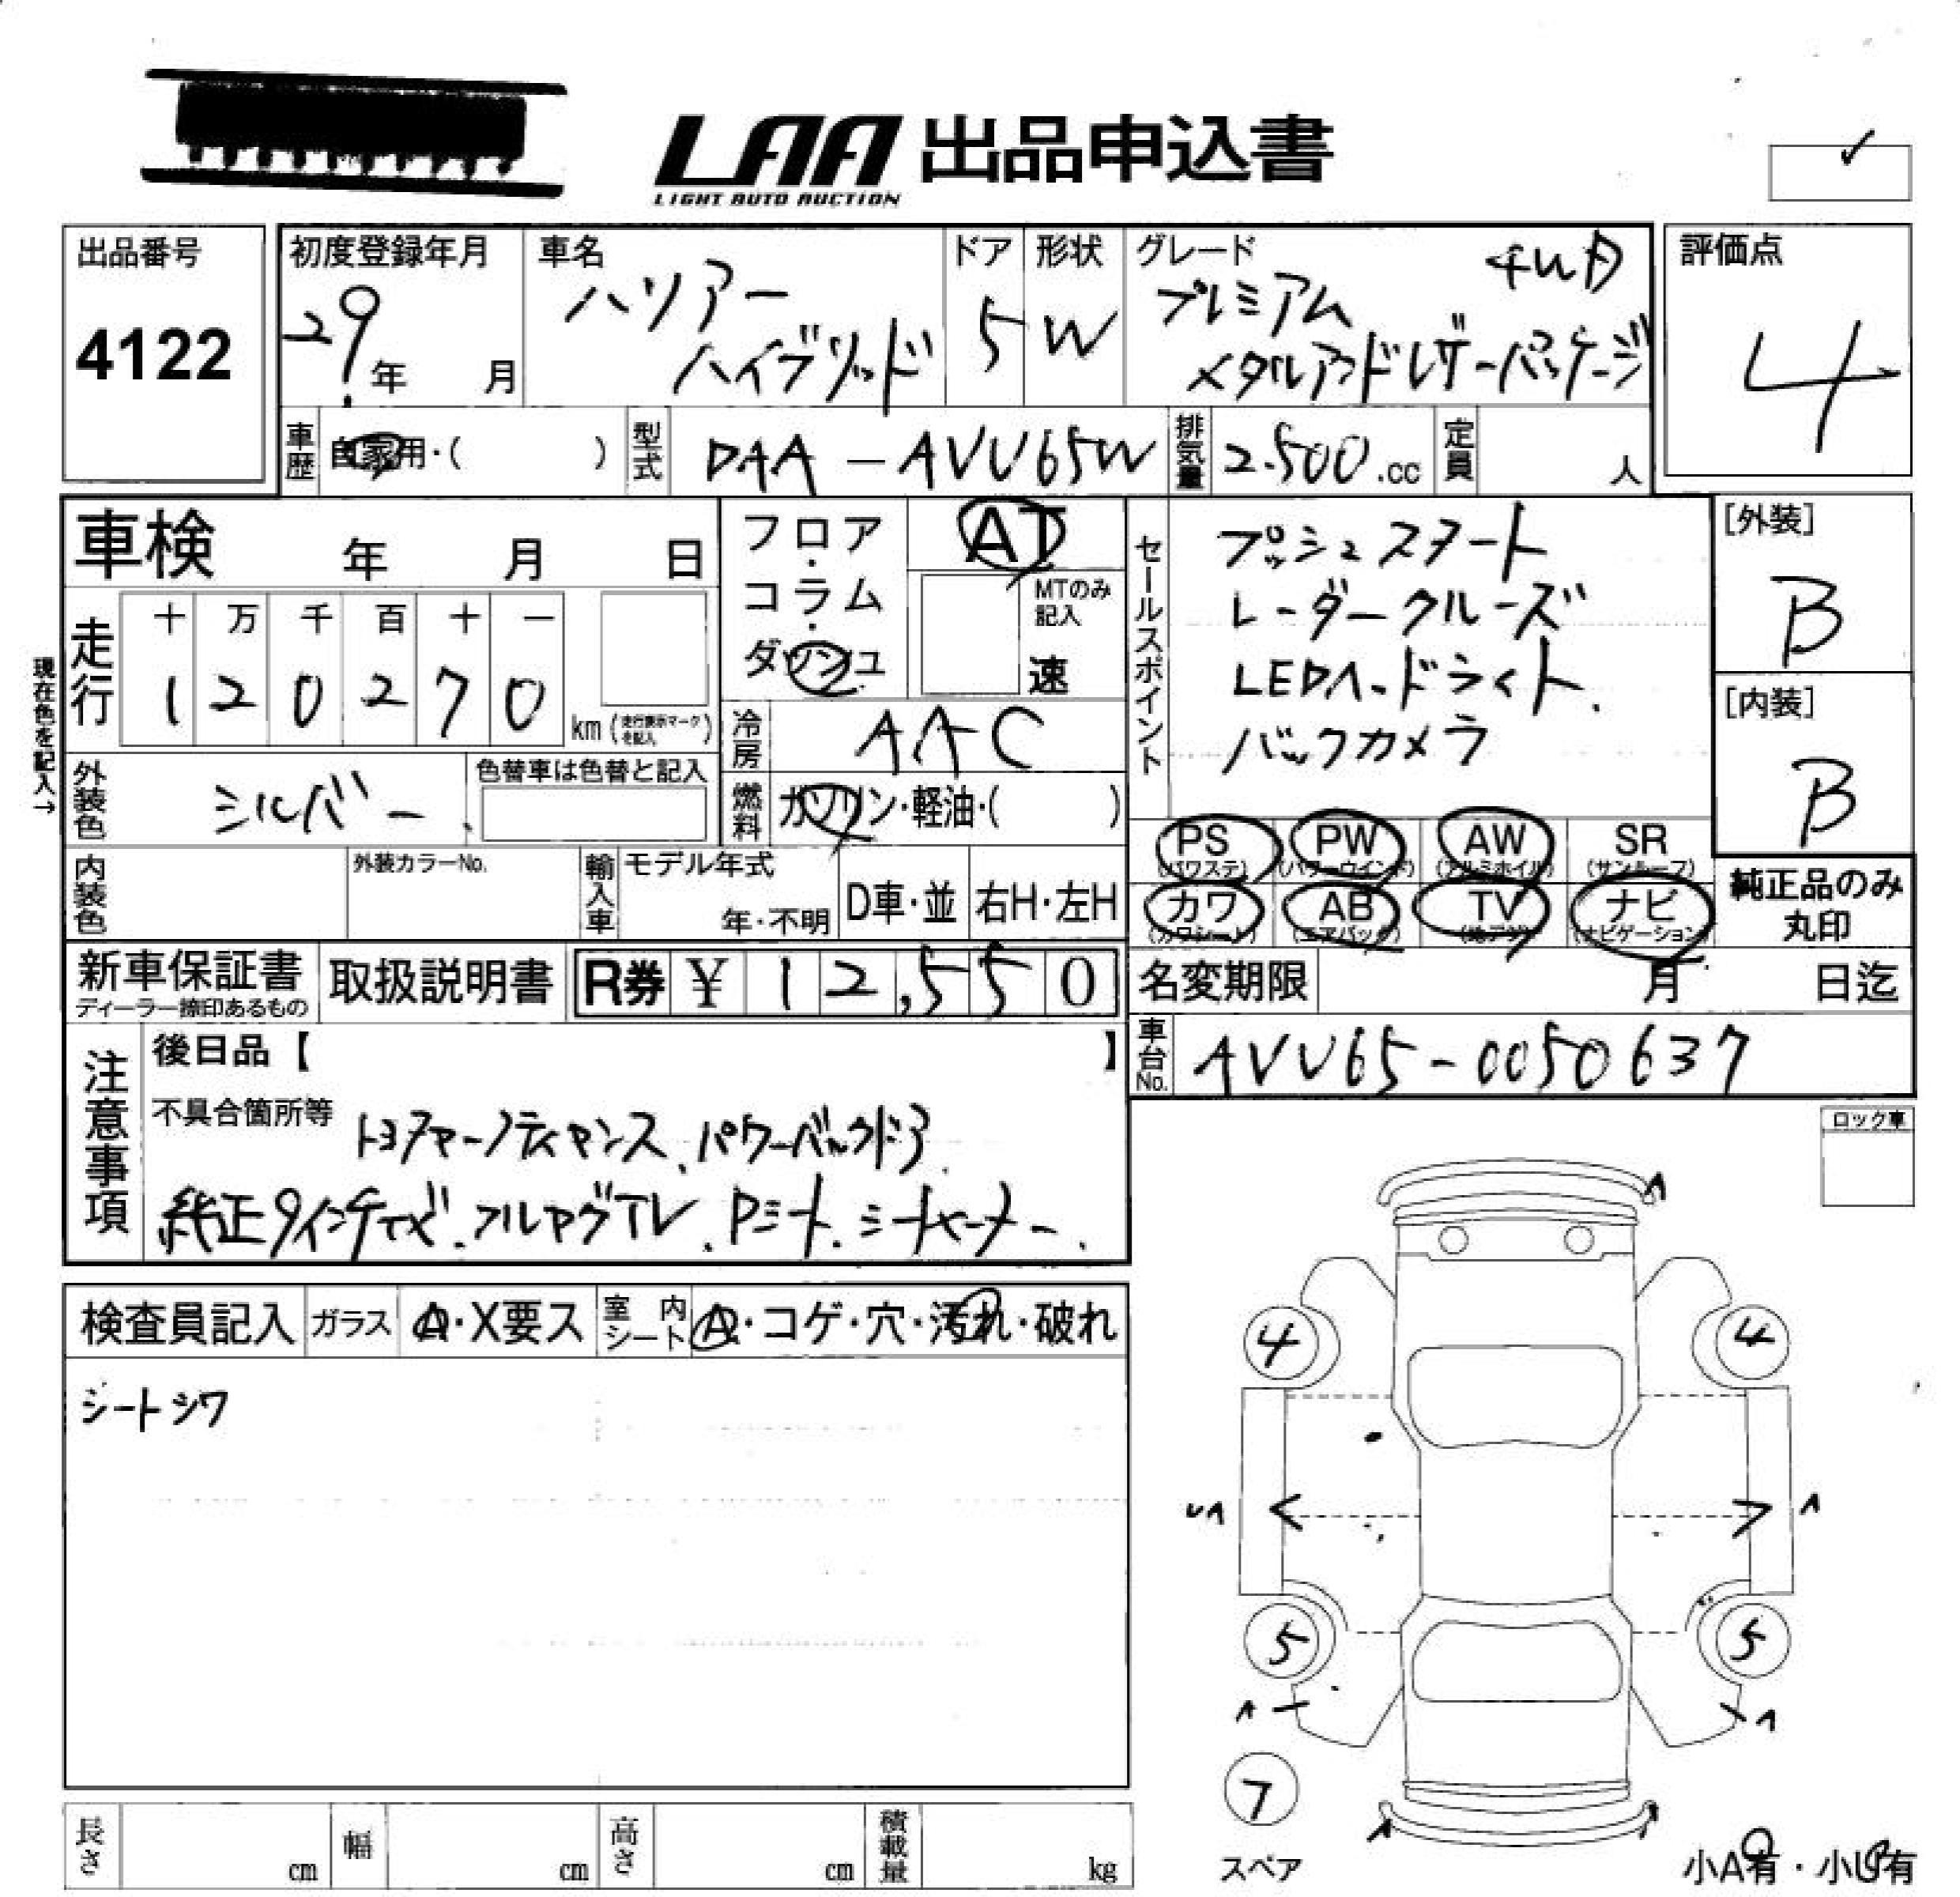 LAA 出品申込書
LIGHT AUTO AUCTION
出品番号
4122
初度登録年月
29 年 月
車名
ハリアー
ハイブリッド
ドア
5
形状
W
グレード
4WD
プレミアム
メタルアンドレザーパッケージ
評価点
4
車歴
自家用・( )
型式
DAA-AVU65W
排気量
2.500.cc
定員
人
車検 年 月 日
フロア・コラム・ダッシュ
AT
MTのみ記入
速
現在色を記入→
走行
十 万 千 百 十 一
1 2 0 2 7 0
km (走行表示マークを記入)
冷房
AAC
外装色
シルバー
色替車は色替と記入
燃料
ガソリン・軽油・( )
内装色
外装カラーNo.
輸入車
モデル年式
年・不明
D車・並
右H・左H
セールスポイント
プッシュスタート
レーダークルーズ
LEDヘッドライト.
バックカメラ
[外装]
B
[内装]
B
PS (パワステ)
PW (パワーウインド)
AW (アルミホイル)
SR (サンルーフ)
カワ (カワシート)
AB (エアバック)
TV (地デジ)
ナビ (ナビゲーション)
純正品のみ丸印
新車保証書
ディーラー捺印あるもの
取扱説明書
R券 ¥ 12,550
名変期限 月 日迄
車台No.
AVU65-0050637
注意事項
後日品【 】
不具合箇所等
パワーバックドア
純正9インチナビ.フルセグTV.Pシート.シートヒーター.
ロック車
検査員記入
ガラス
A・X要ス
室内シート
A・コゲ・穴・汚れ・破れ
シートシワ
4
4
5
5
7
スペア
小A有・小U有
長さ cm
幅 cm
高さ cm
積載量 kg